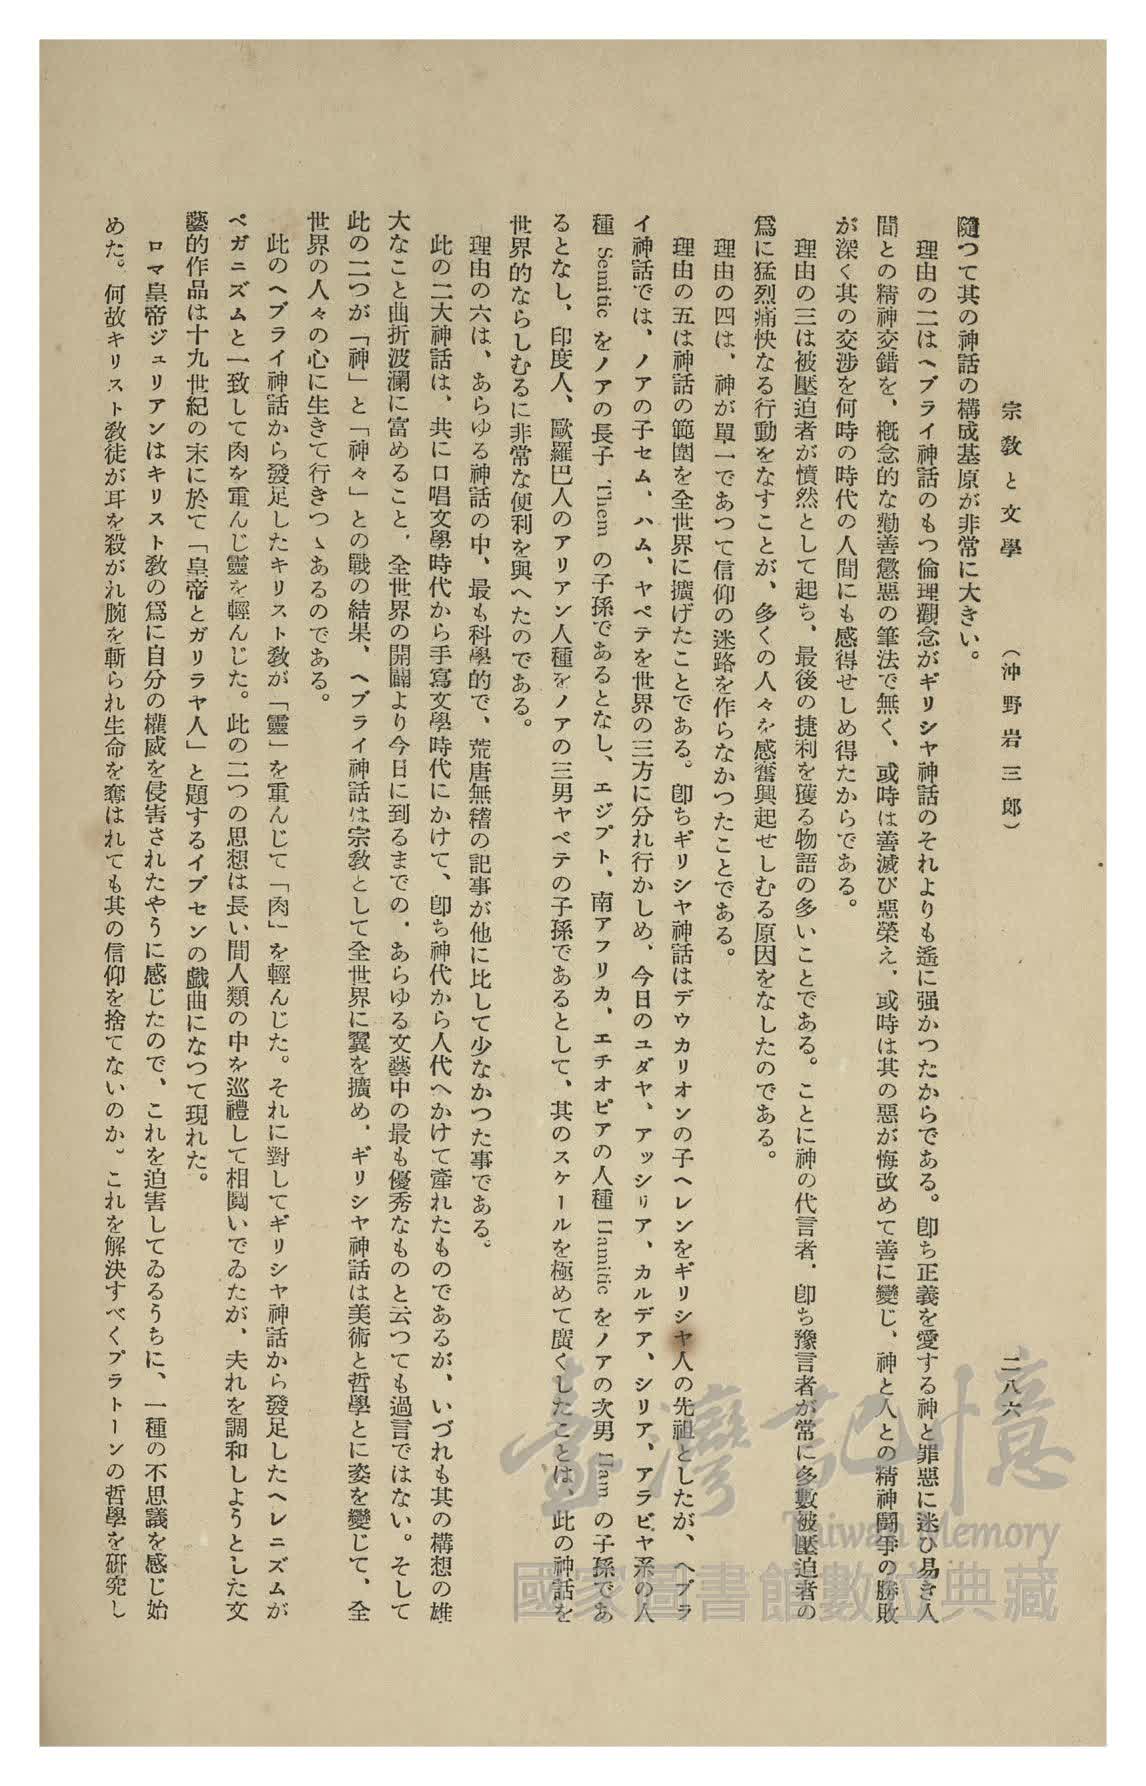 宗教と文學　（沖野岩三郎）　二八六
隨つて其の神話の構成基原が非常に大きい。
理由の二はヘブライ神話のもつ倫理觀念がギリシヤ神話のそれよりも遙に强かつたからである。卽ち正義を愛する神と罪惡に迷ひ易き人
間との精神交錯を、槪念的な勸善懲惡の筆法で無く、或時は善滅び惡榮え、或時は其の惡が悔改めて善に變じ、神と人との精神鬪爭の勝敗
が深く其の交涉を何時の時代の人間にも感得せしめ得たからである。
理由の三は被壓迫者が憤然として起ち、最後の捷利を獲る物語の多いことである。ことに神の代言者、卽ち豫言者が常に多數被壓迫者の
爲に猛烈痛快なる行動をなすことが、多くの人々を感奮興起せしむる原因をなしたのである。
理由の四は、神が單一であつて信仰の迷路を作らなかつたことである。
理由の五は神話の範圍を全世界に擴げたことである。卽ちギリシヤ神話はデウカリオンの子ヘレンをギリシヤ人の先祖としたが、ヘブラ
イ神話では、ノアの子セム、ハム、ヤペテを世界の三方に分れ行かしめ、今日のユダヤ、アッシリア、カルデア、シリア、アラビヤ系の人
種 Semitic をノアの長子 Them の子孫であるとなし、エジプト、南アフリカ、エチオピアの人種 Hamitic をノアの次男 Ham の子孫であ
るとなし、印度人、歐羅巴人のアリアン人種をノアの三男ヤペテの子孫であるとして、其のスケールを極めて廣くしたことは、此の神話を
世界的ならしむるに非常な便利を與へたのである。
理由の六は、あらゆる神話の中、最も科學的で、荒唐無稽の記事が他に比して少なかつた事である。
此の二大神話は、共に口唱文學時代から手寫文學時代にかけて、卽ち神代から人代へかけて產れたものであるが、いづれも其の構想の雄
大なこと曲折波瀾に富めること、全世界の開闢より今日に到るまでの、あらゆる文藝中の最も優秀なものと云つても過言ではない。そして
此の二つが「神」と「神々」との戰の結果、ヘブライ神話は宗敎として全世界に翼を擴め、ギリシヤ神話は美術と哲學とに姿を變じて、全
世界の人々の心に生きて行きつゝあるのである。
此のヘブライ神話から發足したキリスト敎が「靈」を重んじて「肉」を輕んじた。それに對してギリシヤ神話から發足したヘレニズムが
ペガニズムと一致して肉を重んじ靈を輕んじた。此の二つの思想は長い間人類の中を巡禮して相鬩いでゐたが、夫れを調和しようとした文
藝的作品は十九世紀の末に於て「皇帝とガリラヤ人」と題するイブセンの戲曲になつて現れた。
ロマ皇帝ジュリアンはキリスト敎の爲に自分の權威を侵害されたやうに感じたので、これを迫害してゐるうちに、一種の不思議を感じ始
めた。何故キリスト敎徒が耳を殺がれ腕を斬られ生命を奪はれても其の信仰を捨てないのか。これを解決すべくプラトーンの哲學を硏究し
臺灣記憶
Taiwan Memory
國家圖書館數位典藏